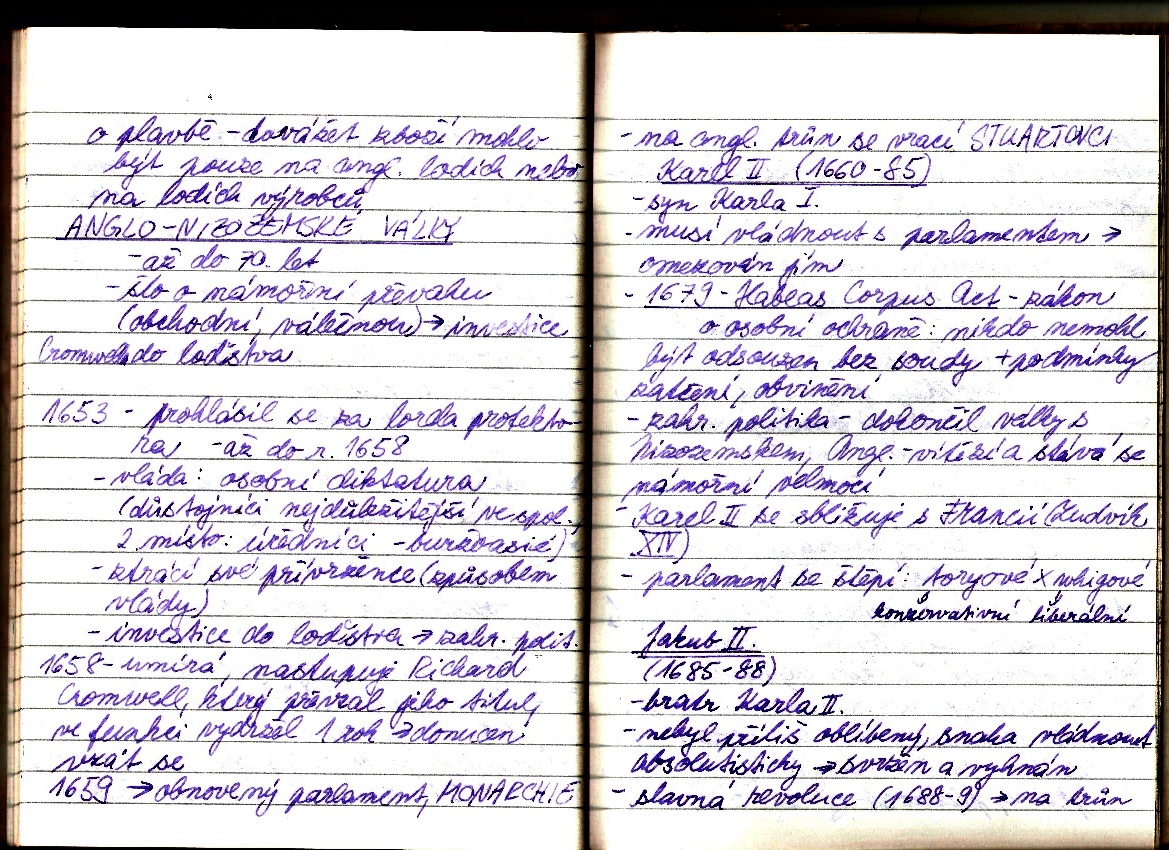 o plavbě - dovážet zboží mohlo
být pouze na angl. lodích nebo
na lodích výrobců
ANGLO-NIZOZEMSKÉ VÁLKY
- až do 70. let
- šlo o námořní převahu
(obchodní, válečnou) → investice
Cromwella do loďstva
1653 - prohlásil se za lorda protekto-
ra - až do r. 1658
- vláda: osobní diktatura
(důstojníci nejdůležitější ve spol.,
2 místo: úředníci - buržoasie)
- ztrácí své přívržence (způsobem
vlády)
- investice do loďstva → zahr. polit.
1658 - umírá, nastupuje Richard
Cromwell, který převzal jeho titul,
ve funkci vydržel 1 rok → donucen
vzdát se
1659 → obnovený parlament, MONARCHIE
- na angl. trůn se vrací STUARTOVCI
Karel II (1660-85)
- syn Karla I.
- musí vládnout s parlamentem →
omezován jím
- 1679 - Habeas Corpus Act - zákon
o osobní ochraně: nikdo nemohl
být odsouzen bez soudu + podmínky
zatčení, obvinění
- zahr. politika - dokončil války s
Nizozemskem, Angl. - vítězí a stává se
námořní velmocí
- Karel II se sbližuje s Francií (Ludvík
XIV)
- parlament se štěpí: toryové x whigové
konzervativní liberální
Jakub II.
(1685-88)
- bratr Karla II.
- nebyl příliš oblíbený, snaha vládnout
absolutisticky → svržen a vyhnán
- slavná revoluce (1688-9) → na trůn